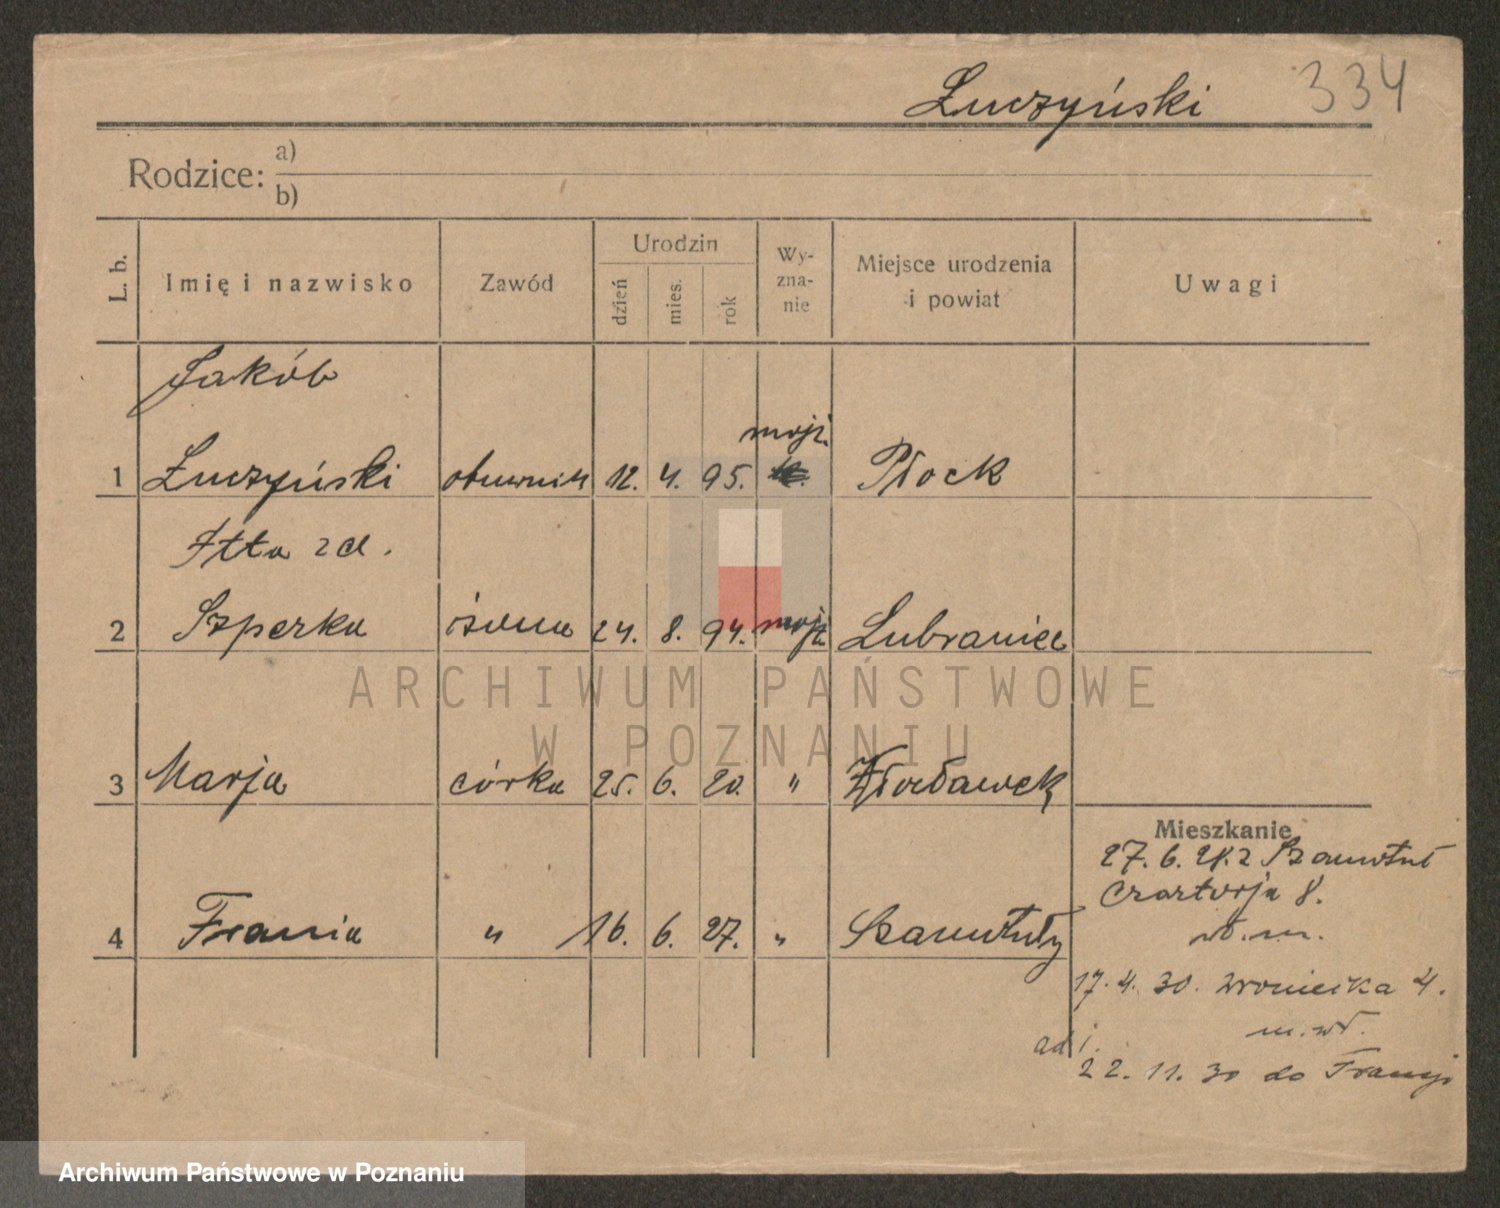 334
Łuczyński
Rodzice: a)
b)
L. b.
Imię i nazwisko
Zawód
Urodzin
dzień
mies.
rok
Wy-
zna-
nie
Miejsce urodzenia
i powiat
Uwagi
Jakób
mojż.
1 Łuczyński obuwnik 12. 4. 95. Płock
Itta z d.
2 Szperka żona 24. 8. 94. mojż. Lubraniec
ARCHIWUM PAŃSTWOWE
W POZNANIU
3 Marja córka 25. 6. 20. " Włocławek
Mieszkanie
27. 6. 28. z Szamotuł
Czartorja 8.
wł. m.
4 Frania " 16. 6. 27. " Szamotuły
17. 4. 30. Wroniecka 4.
m. wł.
ad 1.
22. 11. 30 do Francji
Archiwum Państwowe w Poznaniu